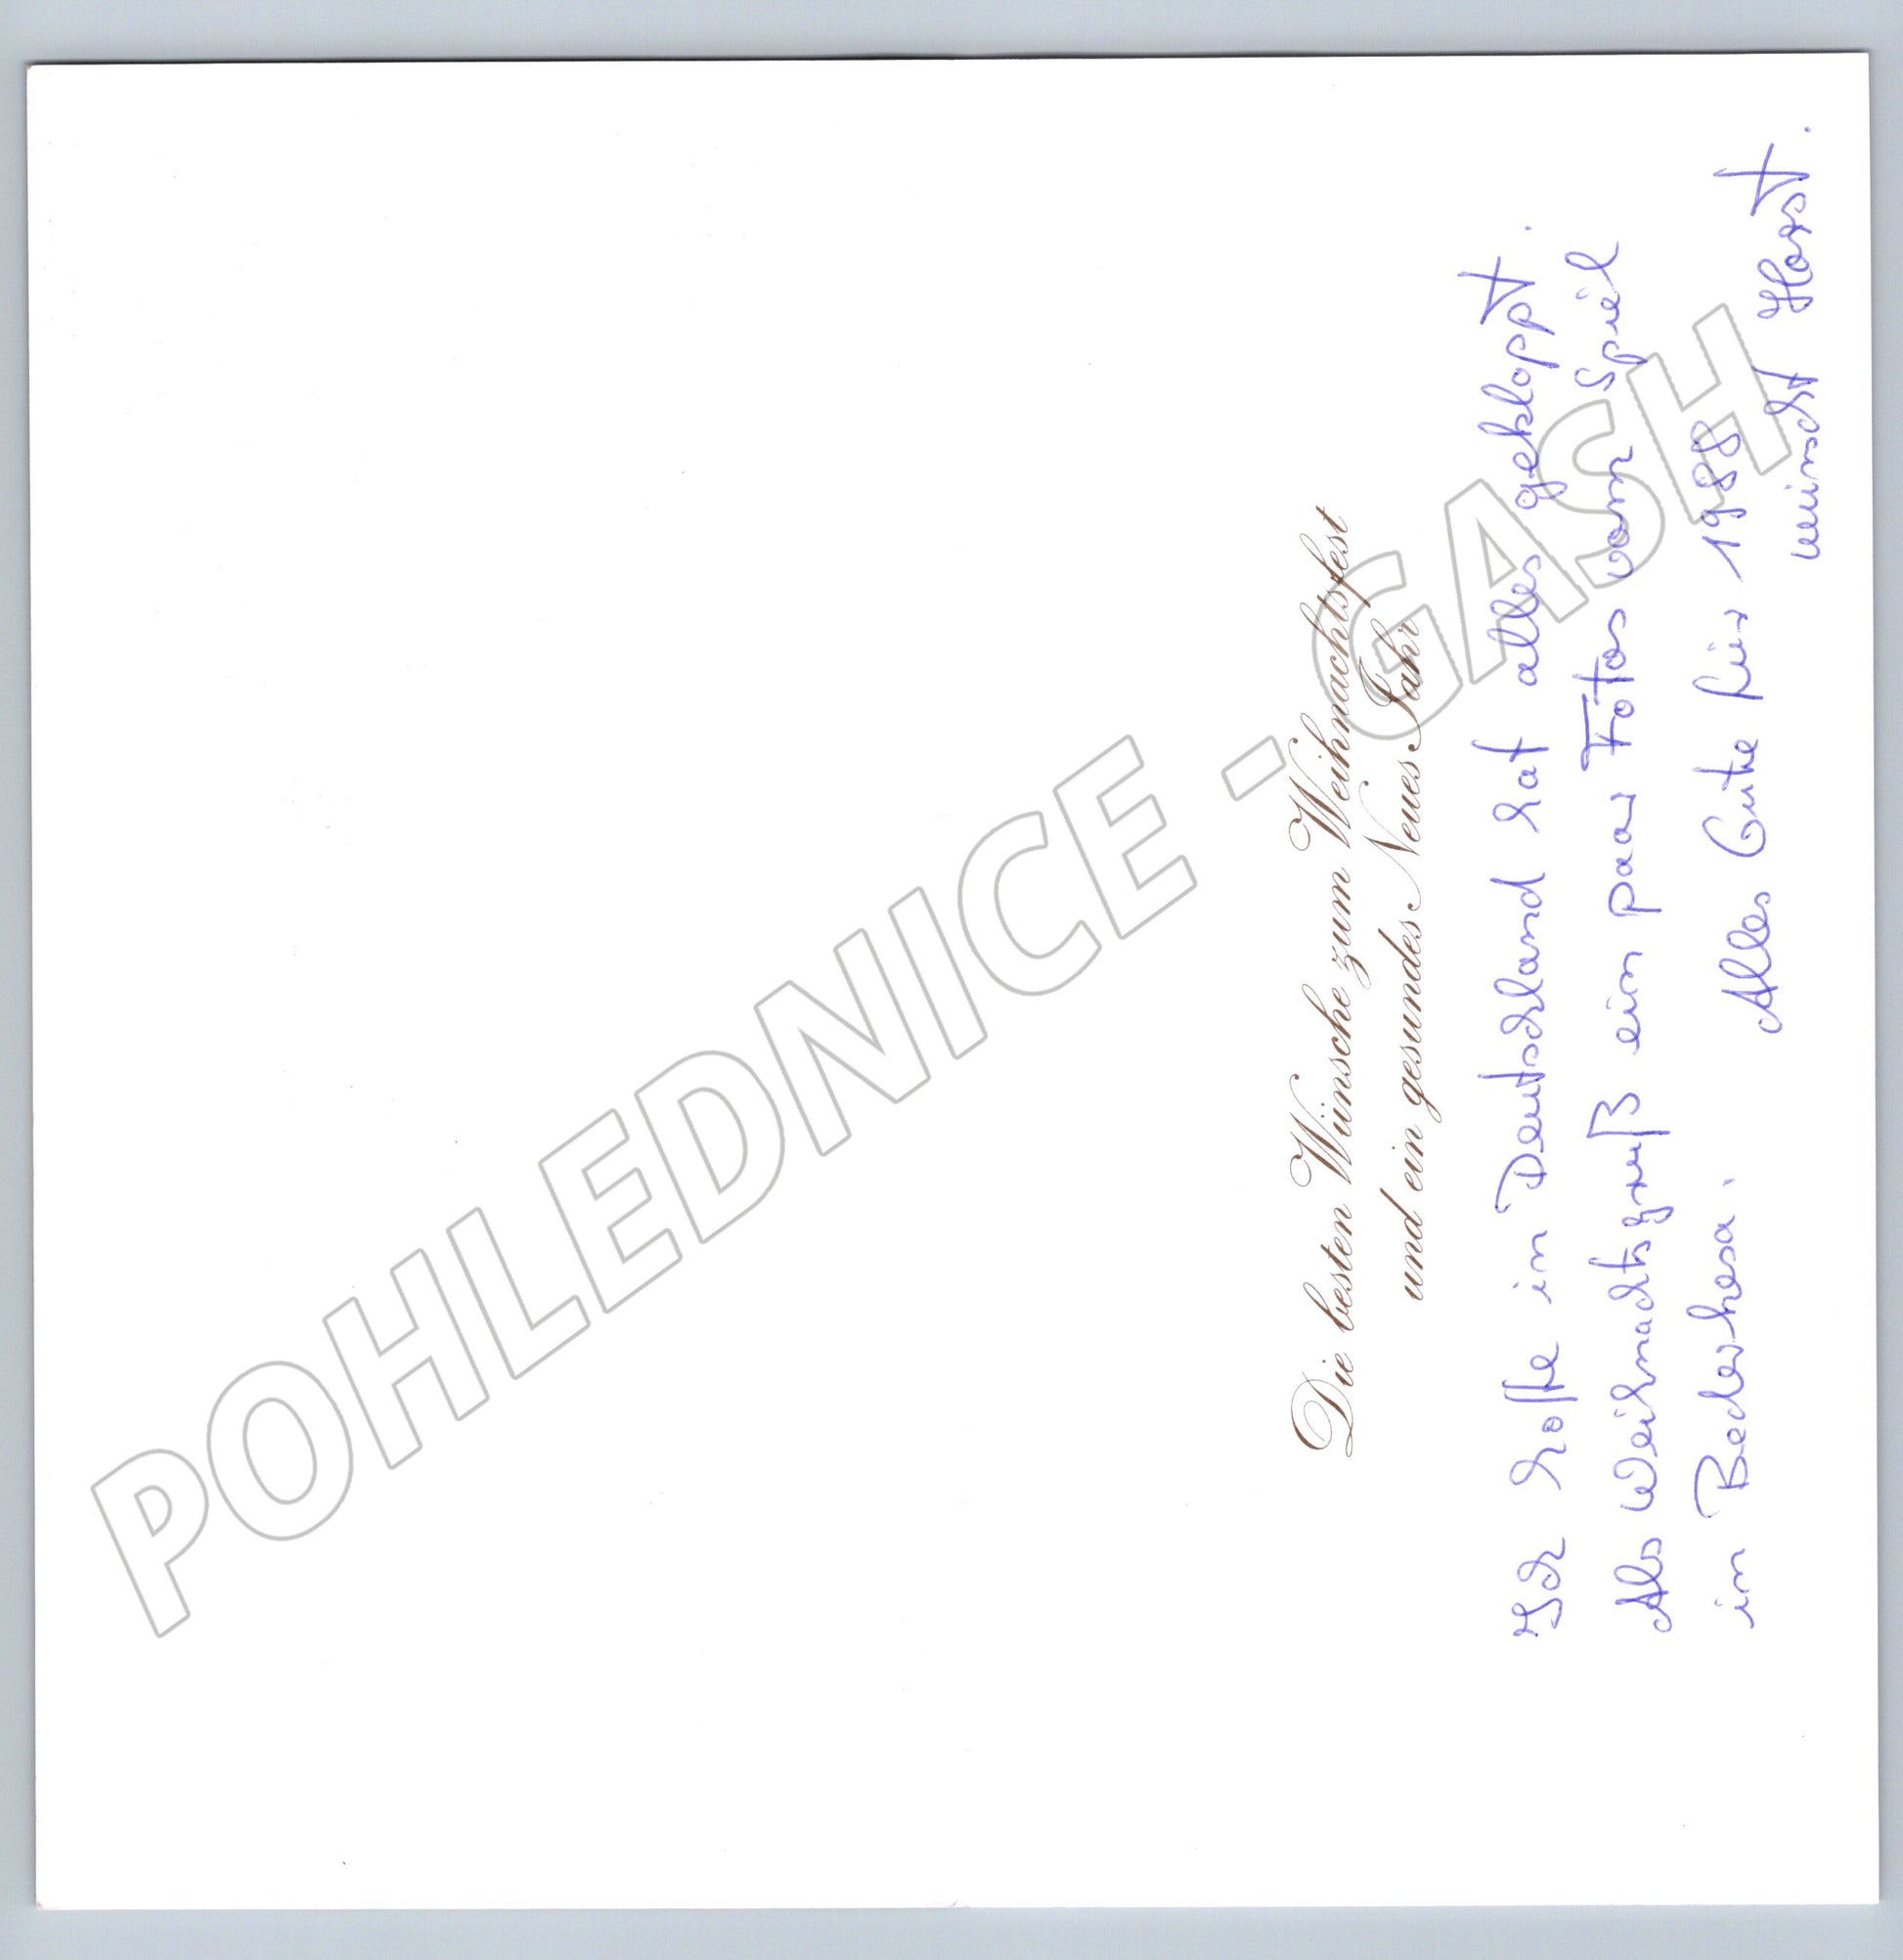 Die besten Wünsche zum Weihnachtsfest
und ein gesundes Neues Jahr
Ich hoffe in Deutschland hat alles geklappt.
Als Weihnachtsgruß ein paar Fotos vom Spiel
in Bederkesa.
Alles Gute für 1988
wünscht Horst.
POHLEDNICE - GASH